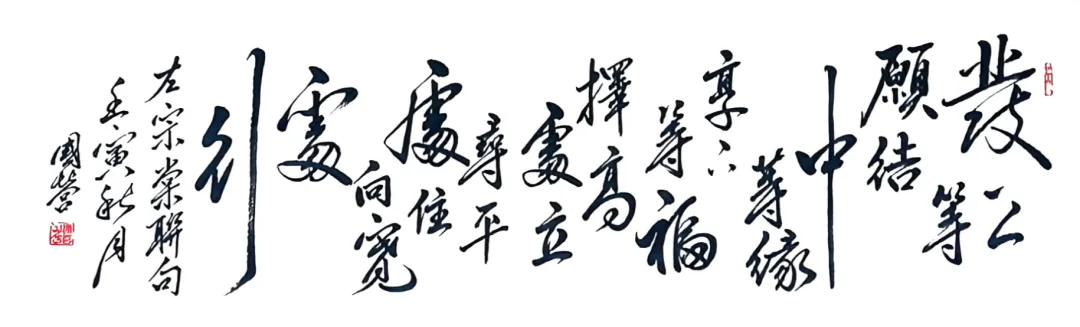 發上
等
願結
中
等緣
享下
等福
擇高
處立
尋平
處住
向寬
處
行
左宗棠聯句
壬寅秋月
國營